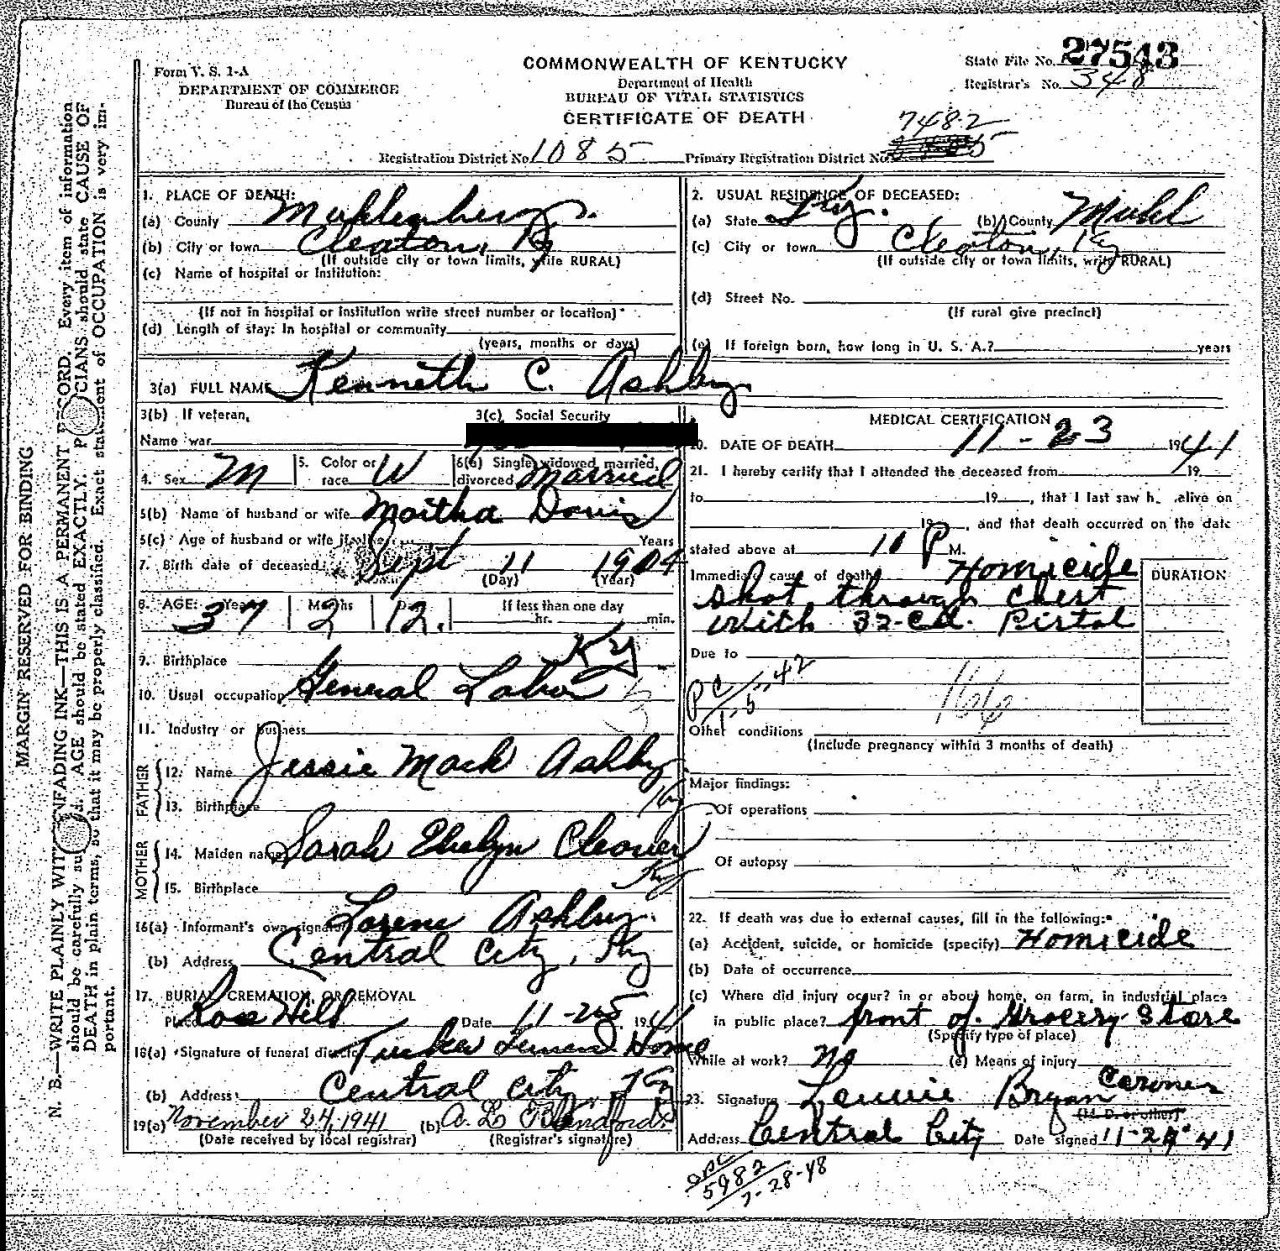 Form V. S. 1-A
DEPARTMENT OF COMMERCE
Bureau of the Census
COMMONWEALTH OF KENTUCKY
Department of Health
BUREAU OF VITAL STATISTICS
CERTIFICATE OF DEATH
State File No. 27543
Registrar's No. 348
7482
Registration District No. 1085 Primary Registration District No.
MARGIN RESERVED FOR BINDING
N. B.—WRITE PLAINLY WITH UNFADING INK—THIS IS A PERMANENT RECORD. Every item of information
should be carefully supplied. AGE should be stated EXACTLY. PHYSICIANS should state CAUSE OF
DEATH in plain terms, so that it may be properly classified. Exact statement of OCCUPATION is very im-
portant.
1. PLACE OF DEATH:
(a) County Muhlenberg
(b) City or town Cleaton, Ky
(If outside city or town limits, write RURAL)
(c) Name of hospital or institution:
(If not in hospital or institution write street number or location)
(d) Length of stay: In hospital or community
(years, months or days)
2. USUAL RESIDENCE OF DECEASED:
(a) State Ky. (b) County Muhl
(c) City or town Cleaton, Ky
(If outside city or town limits, write RURAL)
(d) Street No.
(If rural give precinct)
(e) If foreign born, how long in U. S. A.? years
3(a) FULL NAME Kenneth C. Ashby
3(b) If veteran,
Name war
3(c) Social Security
4. Sex M 5. Color or race W 6(a) Single, widowed, married, divorced Married
6(b) Name of husband or wife Martha Davis
6(c) Age of husband or wife if alive Years
7. Birth date of deceased: Sept 11 1904
(Day) (Year)
8. AGE: Years 37 Months 2 Days 12. If less than one day
hr. min.
9. Birthplace Ky
10. Usual occupation General Labor
11. Industry or business
FATHER
12. Name Jessie Mack Ashby
13. Birthplace Ky
MOTHER
14. Maiden name Sarah Evelyn Cleaver
15. Birthplace Ky
16(a) Informant's own signature Lorene Ashby
(b) Address Central City, Ky
17. BURIAL, CREMATION, OR REMOVAL
Place Rose Hill Date 11-25 1941
18(a) Signature of funeral director Tucker Funeral Home
(b) Address Central City, Ky
19(a) November 24, 1941 (b) A. L. Blandford
(Date received by local registrar) (Registrar's signature)
MEDICAL CERTIFICATION
20. DATE OF DEATH 11-23 1941
21. I hereby certify that I attended the deceased from 19
to 19 , that I last saw h alive on
19 , and that death occurred on the date
stated above at P M.
Immediate cause of death Homicide
shot through chest
with 32-Cal. Pistol
DURATION
Due to
PC
1-5-42
166
Other conditions
(Include pregnancy within 3 months of death)
Major findings:
Of operations
Of autopsy
22. If death was due to external causes, fill in the following:
(a) Accident, suicide, or homicide (specify) Homicide
(b) Date of occurrence
(c) Where did injury occur? in or about home, on farm, in industrial place
in public place? front of Grocery Store
(Specify type of place)
While at work? No (e) Means of injury
23. Signature Lennie Bryan Coroner
(M. D. or other)
Address Central City Date signed 11-24-41
5982
7-28-48